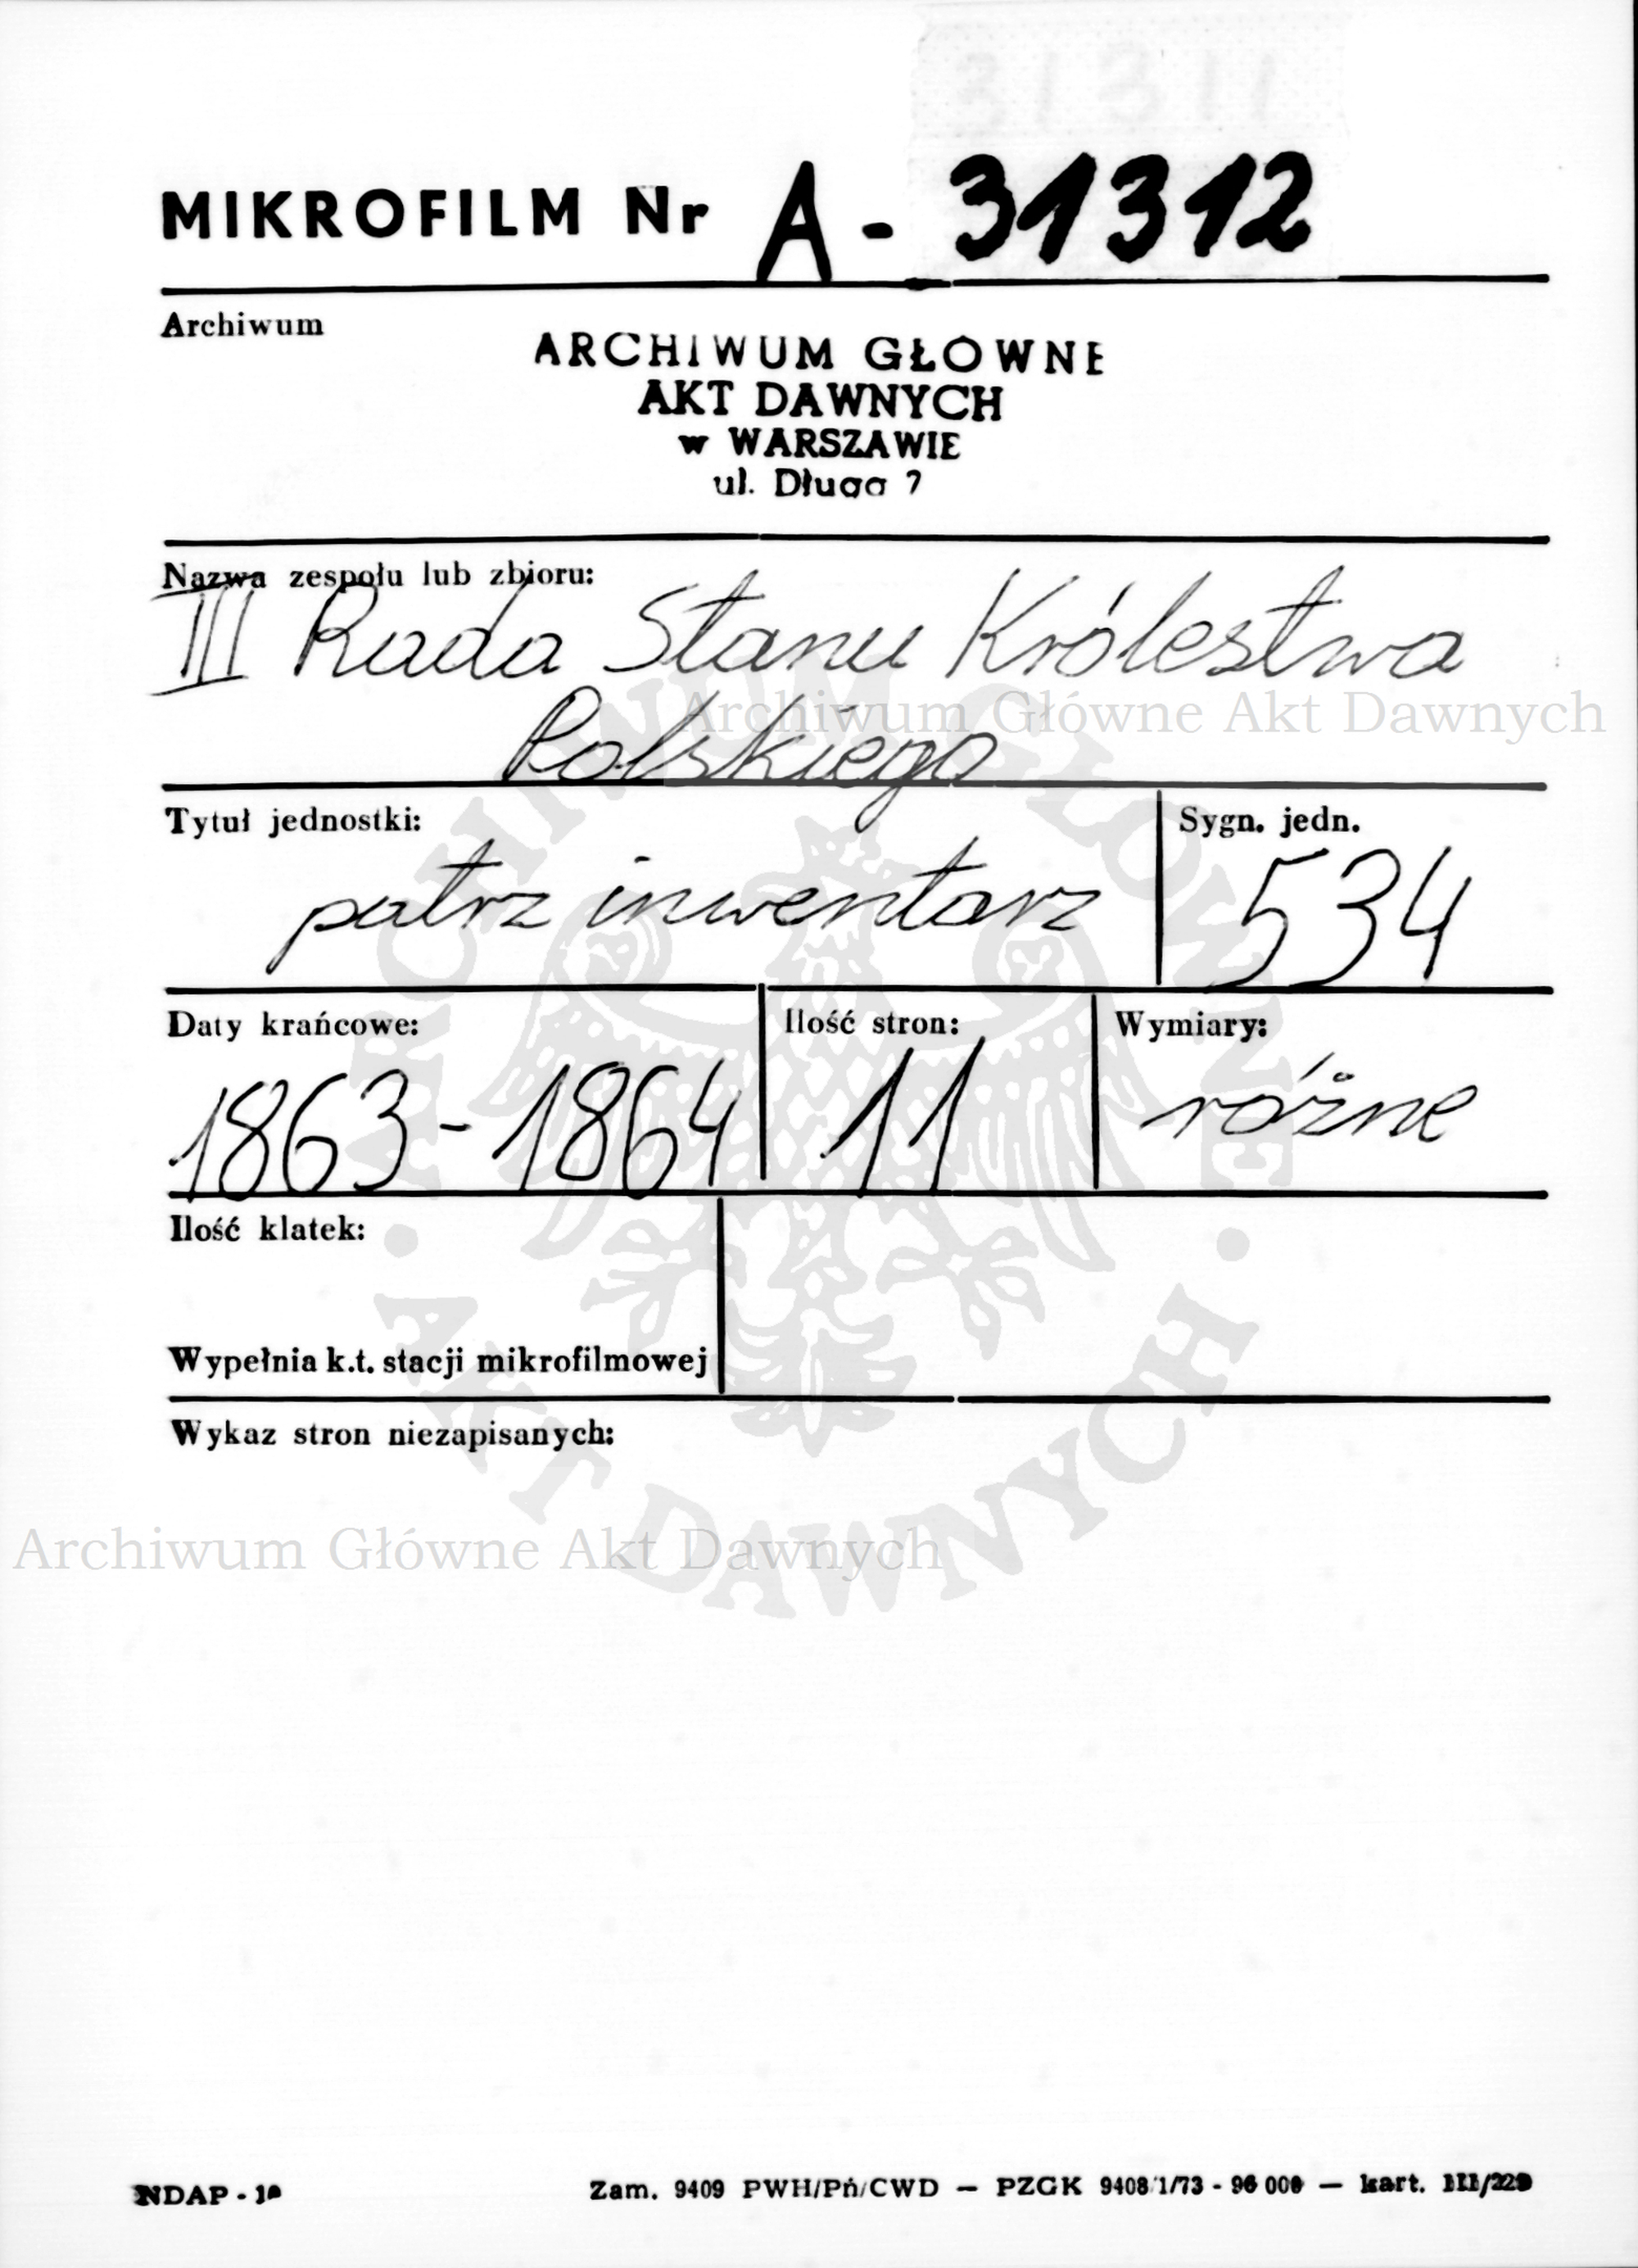 31311
MIKROFILM Nr A - 31312
Archiwum
ARCHIWUM GŁOWNE
AKT DAWNYCH
w WARSZAWIE
ul. Długa 7
Nazwa zespołu lub zbioru:
III Rada Stanu Królestwa
Archiwum Główne Akt Dawnych
Polskiego
Tytuł jednostki:
Sygn. jedn.
patrz inwentarz
534
Daty krańcowe:
Ilość stron:
Wymiary:
1863-1864
11
różne
Ilość klatek:
Wypełnia k.t. stacji mikrofilmowej
Wykaz stron niezapisanych:
ARCHIWUM GŁÓWNE · AKT DAWNYCH ·
Archiwum Główne Akt Dawnych
NDAP - 10
Zam. 9409 PWH/Pń/CWD — PZGK 9408/1/73 - 96 000 — kart.